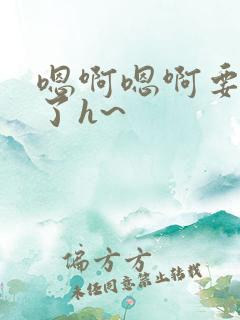 嗯啊嗯啊要
了h~
偏方方
未经同意禁止转载